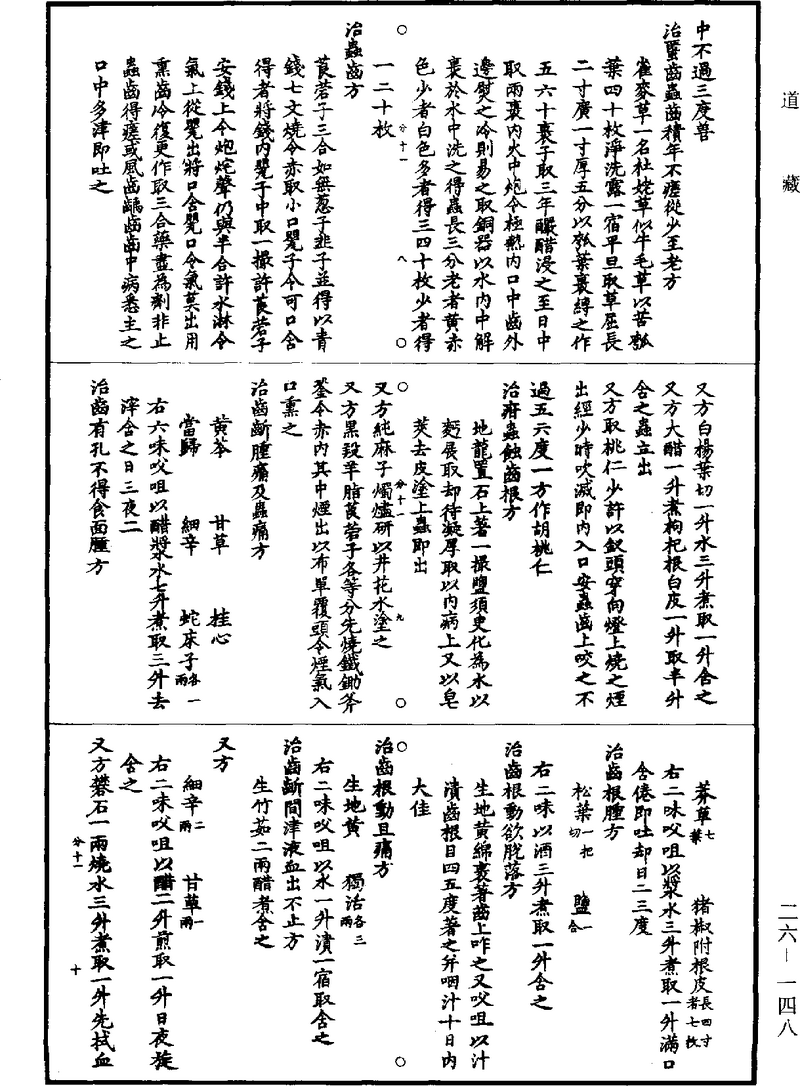 道藏
中不過三度善
治䘌齒蟲齒積年不瘥從少至老方
雀麥草一名杜姥草似牛毛草以苦瓠
葉四十枚淨洗露一宿平旦取草屈長
二寸廣一寸厚五分以瓠葉裹縛之作
五六十裹子取三年釅醋浸之至日中
取兩裹內火中炮令極熱內口中齒外
邊熨之冷則易之取銅器以水內中解
裹於水中洗之得蟲長三分老者黃赤
色少者白色多者得三四十枚少者得
一二十枚
分十一
八
治蟲齒方
莨菪子三合如無葱子韭子並得以青
錢七文燒令赤取小口甖子令可口含
得者將錢內甖子中取一撮許莨菪子
安錢上令炮烢聲仍與半合許水淋令
氣上從甖出將口含甖口令氣莫出用
熏齒冷復更作取三合藥盡為劑非止
蟲齒得瘥或風齒齲齒齒中病悉主之
口中多津即吐之
又方白楊葉切一升水三升煮取一升含之
又方大醋一升煮枸杞根白皮一升取半升
含之蟲立出
又方取桃仁少許以釵頭穿向燈上燒之煙
出經少時吹滅即內入口安蟲齒上咬之不
過五六度一方作胡桃仁
治疳蟲蝕齒根方
地龍置石上著一撮鹽須臾化為水以
麪展取却待凝厚取以內病上又以皂
莢去皮塗上蟲即出
又方純麻子燭燼研以井花水塗之
分十一
九
又方黑羖羊脂莨菪子各等分先燒鐵鋤斧
銎令赤內其中煙出以布單覆頭令煙氣入
口熏之
治齒齗腫痛及蟲痛方
黃芩 甘草 桂心
當歸 細辛 蛇床子各一兩
右六味㕮咀以醋漿水七升煮取三升去
滓含之日三夜二
治齒有孔不得食面腫方
莽草七葉 猪椒附根皮長四寸者七枚
右二味㕮咀以漿水三升煮取一升滿口
含倦即吐却日二三度
治齒根腫方
松葉一把切 鹽一合
右二味以酒三升煮取一升含之
治齒根動欲脫落方
生地黃綿裹著齒上咋之又㕮咀以汁
漬齒根日四五度著之并咽汁十日內
大佳
治齒根動且痛方
生地黃 獨活各三兩
右二味㕮咀以水一升漬一宿取含之
治齒齗間津液血出不止方
生竹茹二兩醋煮含之
又方
細辛二兩 甘草一兩
右二味㕮咀以醋二升煎取一升日夜旋
含之
又方礬石一兩燒水三升煮取一升先拭血
分十一
十
二六—一四八